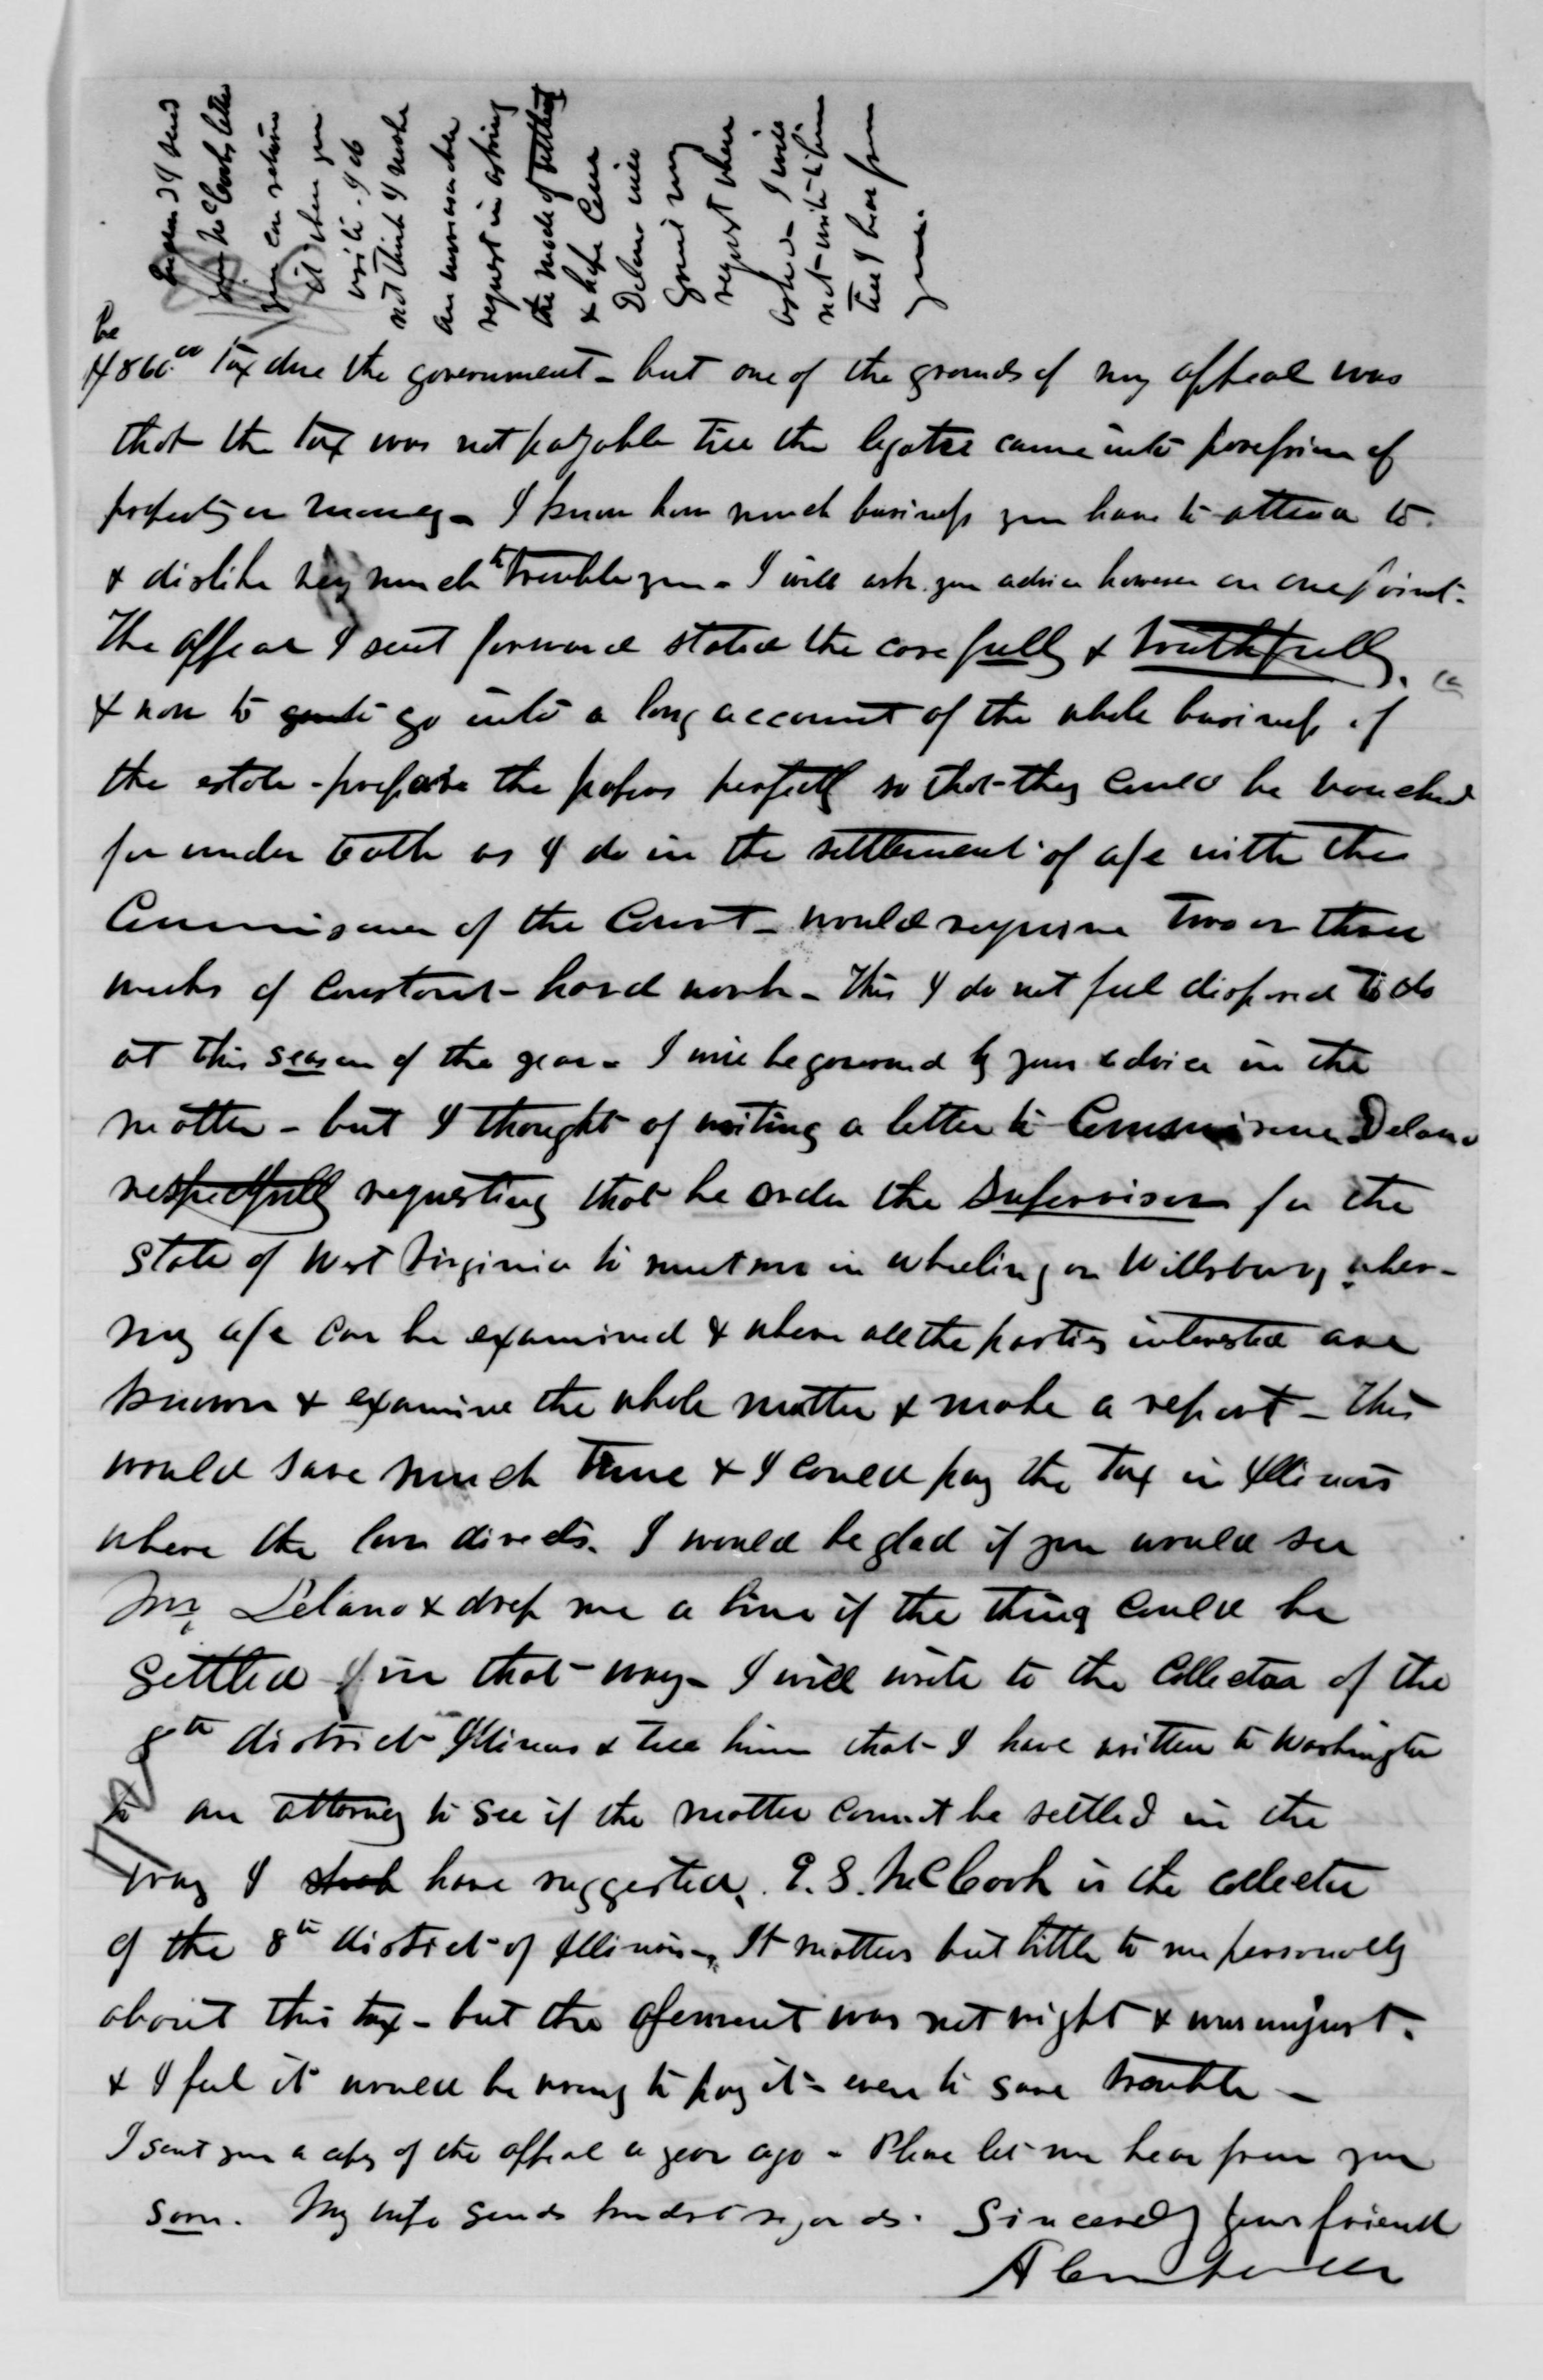 I send
you McCook's letter
you can return
it when you
write - I do
not think I make
an unreasonable
request in asking
the mode of settling
& hope Com
Delano will
grant my
request when
asked - I will
not write to him
till I hear from
you.
be
4860.00 tax due the government - but one of the grounds of my appeal was
that the tax was not payable till the legatee came into possession of
property or money - I know how much business you have to attend to
& dislike very much to trouble you - I will ask your advice however on one point -
The appeal I sent forward stated the case fully & truthfully.
& now to go into a long account of the whole business of
the estate - prepare the papers perfectly so that they could be vouched
for under oath as I do in the settlement of a/c with the
Commissioner of the Court - would require two or three
weeks of constant hard work - This I do not feel disposed to do
at this season of the year - I will be governed by your advice in the
matter - but I thought of writing a letter to Commissioner Delano
respectfully requesting that he order the Supervisor for the
State of West Virginia to meet me in Wheeling or Wellsburg where
my a/c can be examined & where all the parties interested are
known & examine the whole matter & make a report - This
would save much time & I could pay the tax in Illinois
where the law directs. I would be glad if you would see
Mr Delano & drop me a line if the thing could be
settled in that way - I will write to the Collector of the
8th district Illinois & tell him that I have written to Washington
to an attorney to see if the matter cannot be settled in the
way I have suggested. E. S. McCook is the collector
of the 8th district of Illinois - It matters but little to me personally
about this tax - but the assessment was not right & was unjust -
& I feel it would be wrong to pay it - even to save trouble -
I sent you a copy of the appeal a year ago - Please let me hear from you
soon. My wife sends kindest regards. Sincerely your friend
A Campbell